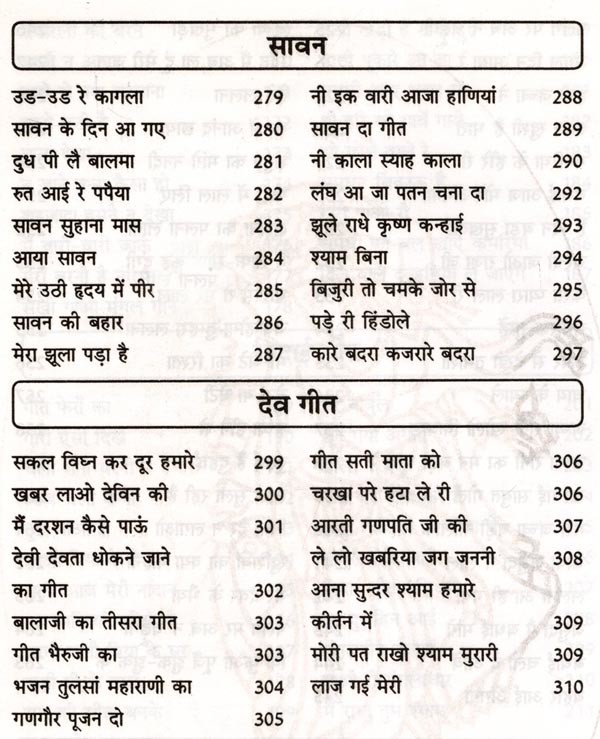 सावन
उड-उड रे कागला 279
सावन के दिन आ गए 280
दुध पी लै बालमा 281
रुत आई रे पपैया 282
सावन सुहाना मास 283
आया सावन 284
मेरे उठी हृदय में पीर 285
सावन की बहार 286
मेरा झूला पड़ा है 287
नी इक वारी आजा हाणियां 288
सावन दा गीत 289
नी काला स्याह काला 290
लंघ आ जा पतन चना दा 292
झूले राधे कृष्ण कन्हाई 293
श्याम बिना 294
बिजुरी तो चमके जोर से 295
पड़े री हिंडोले 296
कारे बदरा कजरारे बदरा 297
देव गीत
सकल विघ्न कर दूर हमारे 299
खबर लाओ देविन की 300
मैं दरशन कैसे पाऊं 301
देवी देवता धोकने जाने
का गीत 302
बालाजी का तीसरा गीत 303
गीत भैरुजी का 303
भजन तुलसां महाराणी का 304
गणगौर पूजन दो 305
गीत सती माता को 306
चरखा परे हटा ले री 306
आरती गणपति जी की 307
ले लो खबरिया जग जननी 308
आना सुन्दर श्याम हमारे
कीर्तन में 309
मोरी पत राखो श्याम मुरारी 309
लाज गई मेरी 310